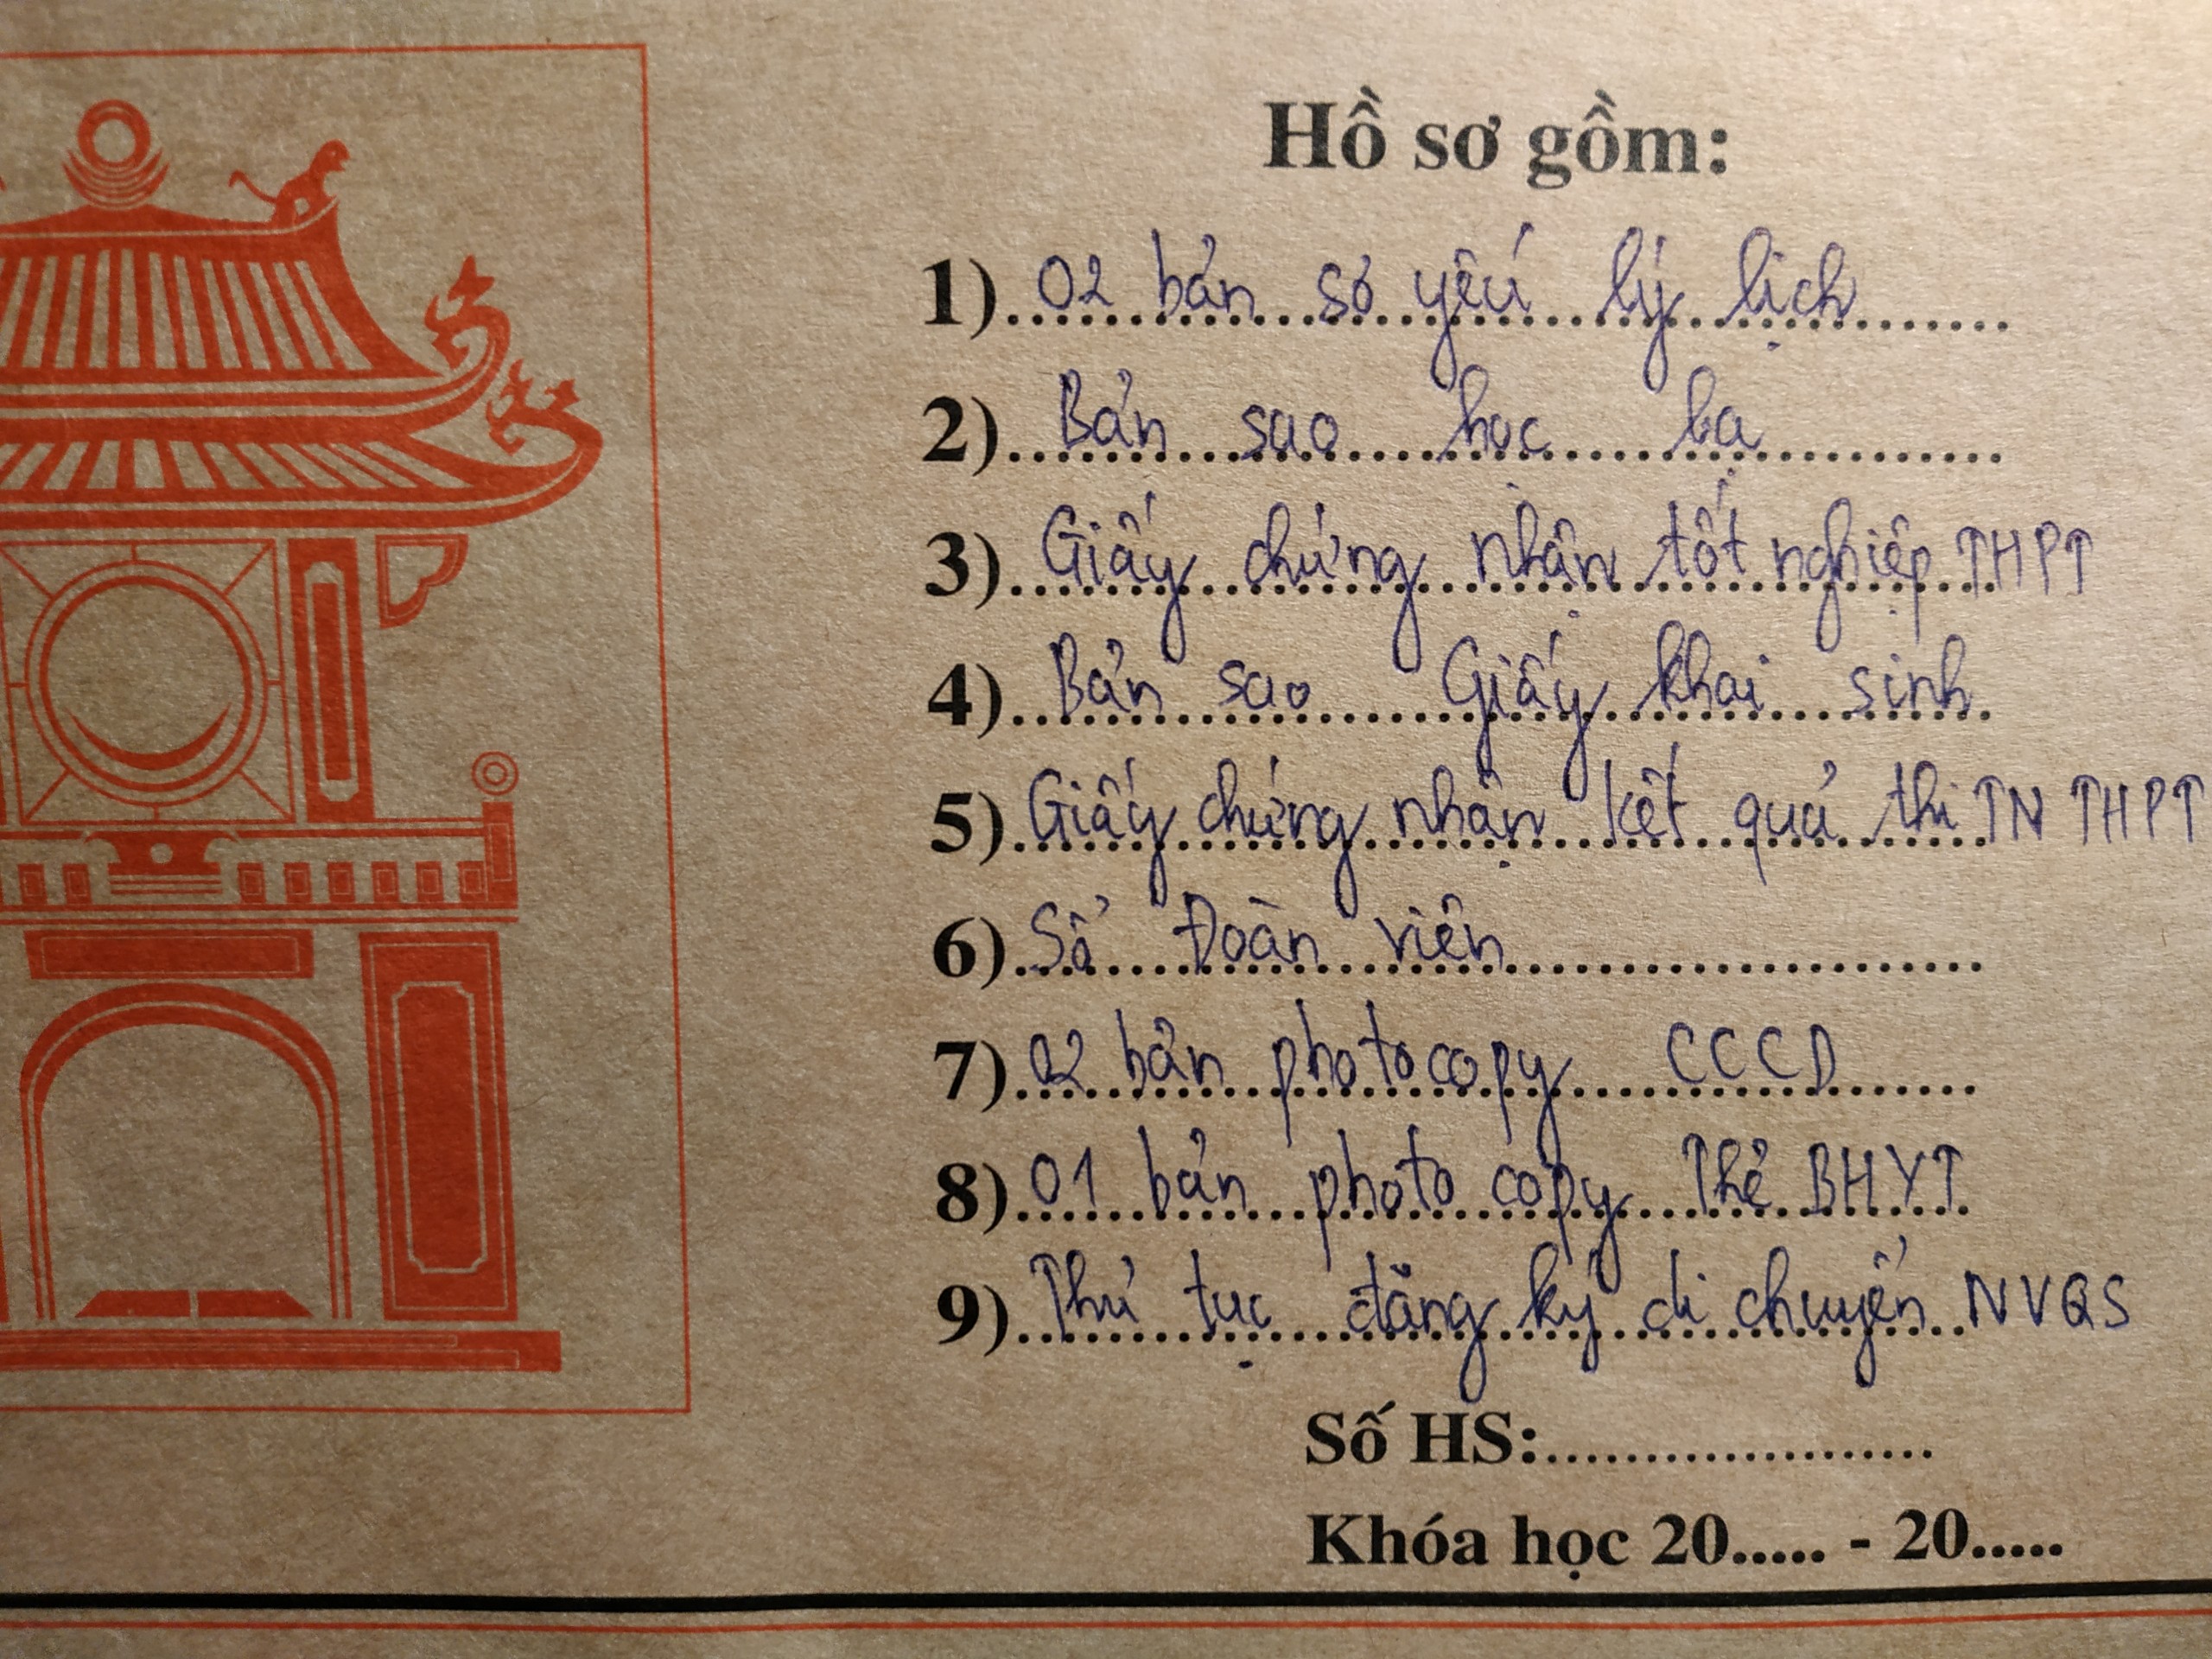 Hồ sơ gồm:
1) 02 bản sơ yếu lý lịch
2) Bản sao học bạ
3) Giấy chứng nhận tốt nghiệp THPT
4) Bản sao Giấy khai sinh
5) Giấy chứng nhận kết quả thi TN THPT
6) Sổ Đoàn viên
7) 02 bản photocopy CCCD
8) 01 bản photo copy Thẻ BHYT
9) Thủ tục đăng ký di chuyển NVQS
Số HS:....................
Khóa học 20..... - 20.....